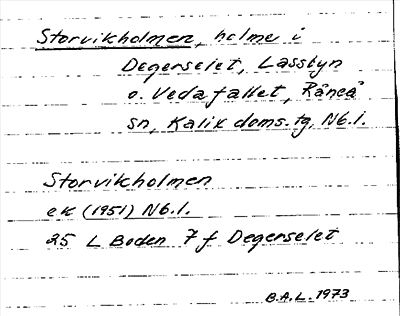 Storvikholmen, holme i
Degerselet, Lassbyn
o. Vedafallet, Råneå
sn, Kalix doms. tg, Nb.l.
Storvikholmen
ek (1951) Nb.l.
25 L Boden 7 f Degerselet
B.A.L. 1973